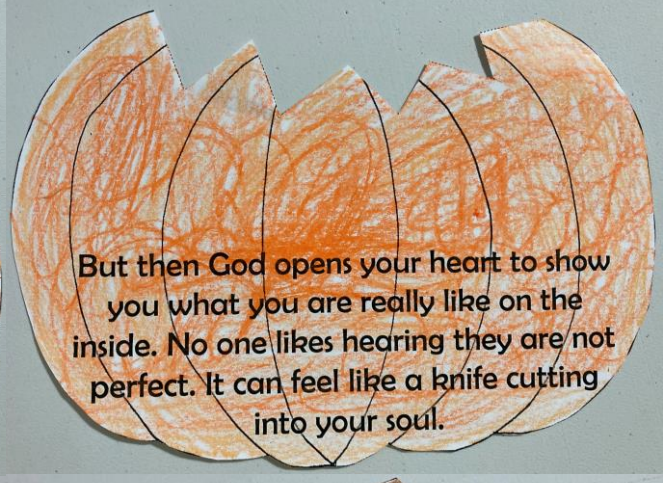 But then God opens your heart to show
you what you are really like on the
inside. No one likes hearing they are not
perfect. It can feel like a knife cutting
into your soul.